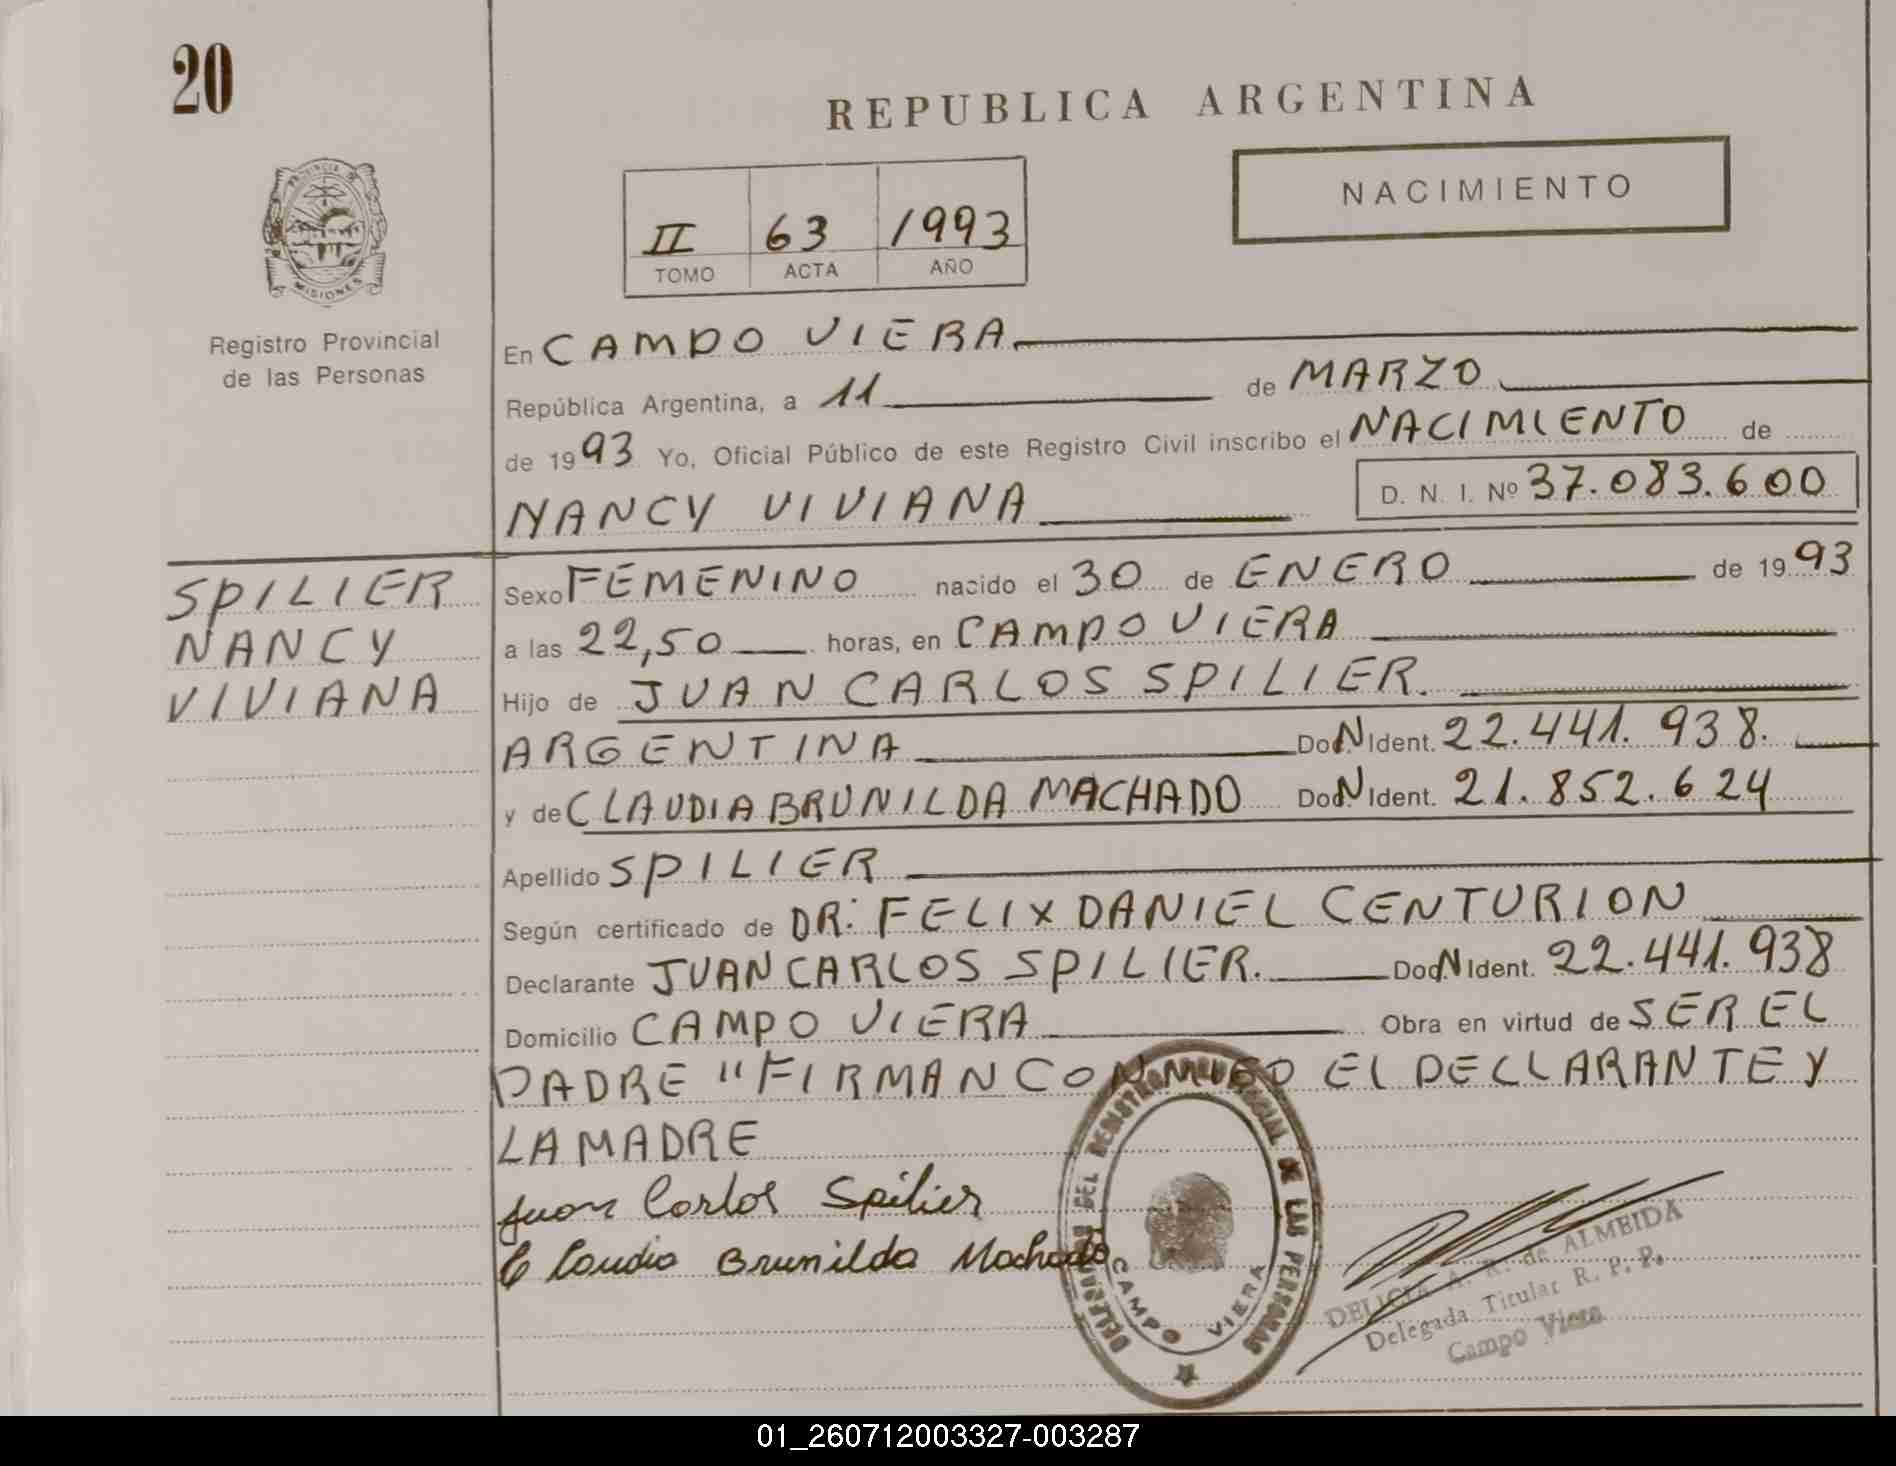 20
REPUBLICA ARGENTINA
NACIMIENTO
II 63 1993
TOMO ACTA AÑO
PROVINCIA DE
MISIONES
Registro Provincial
de las Personas
En CAMPO VIERA
República Argentina, a 11 de MARZO
de 1993 Yo, Oficial Público de este Registro Civil inscribo el NACIMIENTO de
NANCY VIVIANA D. N. I. Nº 37.083.600
SPILIER
NANCY
VIVIANA
Sexo FEMENINO nacido el 30 de ENERO de 1993
a las 22,50 horas, en CAMPO VIERA
Hijo de JUAN CARLOS SPILIER.
ARGENTINA Doc.N Ident. 22.441.938.
y de CLAUDIA BRUNILDA MACHADO Doc.N Ident. 21.852.624
Apellido SPILIER
Según certificado de DR: FELIX DANIEL CENTURION
Declarante JUAN CARLOS SPILIER. Doc.N Ident. 22.441.938
Domicilio CAMPO VIERA Obra en virtud de SER EL
PADRE "FIRMAN CONMIGO EL DECLARANTE Y
LA MADRE
Juan Carlos Spilier
Claudia Brunilda Machado
DEL REGISTRO PROVINCIAL DE LAS PERSONAS
CAMPO VIERA
DELICIA A. R. de ALMEIDA
Delegada Titular R. P. P.
Campo Viera
01_260712003327-003287